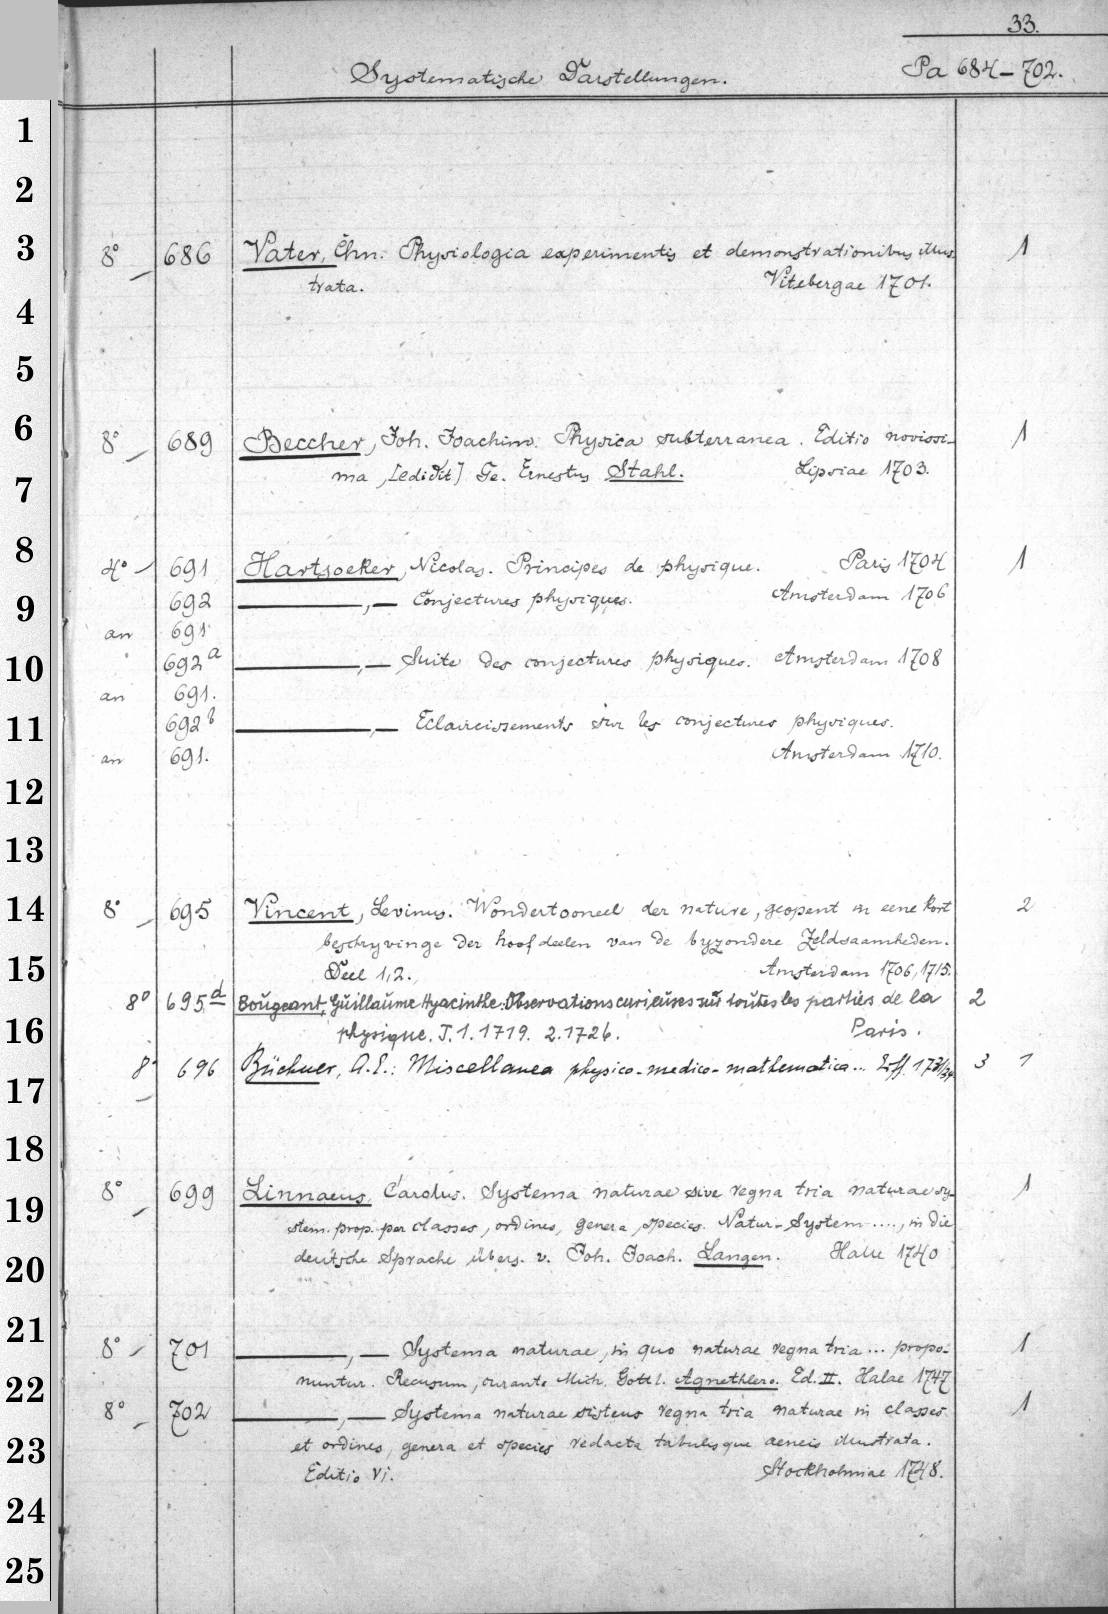 33.
Systematische Darstellungen. Pa 684-702.
1
2
3 8° 686 Vater, Chn: Physiologia experimentis et demonstrationibus illus- 1
trata. Vitebergae 1701.
4
5
6 8° 689 Beccher, Joh. Joachim. Physica subterranea. Editio novissi- 1
ma, [edidit] Ge. Ernestus Stahl. Lipsiae 1703.
7
8 4° 691 Hartsoeker, Nicolas. Principes de physique. Paris 1704 1
9 692 ———, — Conjectures physiques. Amsterdam 1706
an 691
10 692a ———, — Suite des conjectures physiques. Amsterdam 1708
an 691.
11 692b ———, — Eclaircissements sur les conjectures physiques.
an 691. Amsterdam 1710.
12
13
14 8° 695 Vincent, Levinus. Wondertooneel der nature, geopent in eene kort 2
beschryvinge der hoofdeelen van de byzondere Zeldsaamheden.
15 Deel 1,2. Amsterdam 1706, 1715.
8° 695d Bougeant, Guillaume Hyacinthe: Observations curieuses sur toutes les parties de la 2
16 physique. T. 1. 1719. 2. 1726. Paris.
8° 696 Büchner, A. E.: Miscellanea physico-medico-mathematica... Erff. 3 1
17
18
19 8° 699 Linnaeus, Carolus. Systema naturae sive regna tria naturae sy- 1
stem. prop. per classes, ordines, genera, species. Natur-System...., in die
20 deutsche Sprache übers. v. Joh. Joach. Langen. Halle 1740
21 8° 701 ———, — Systema naturae, in quo naturae regna tria... propo- 1
22 nuntur. Recusum, curante Mich. Gottl. Agnethlero. Ed. II. Halae 1747
8° 702 ———, — Systema naturae sistens regna tria naturae in classes 1
23 et ordines, genera et species redacta tabulisque aeneis illustrata.
Editio VI. Stockholmiae 1748.
24
25